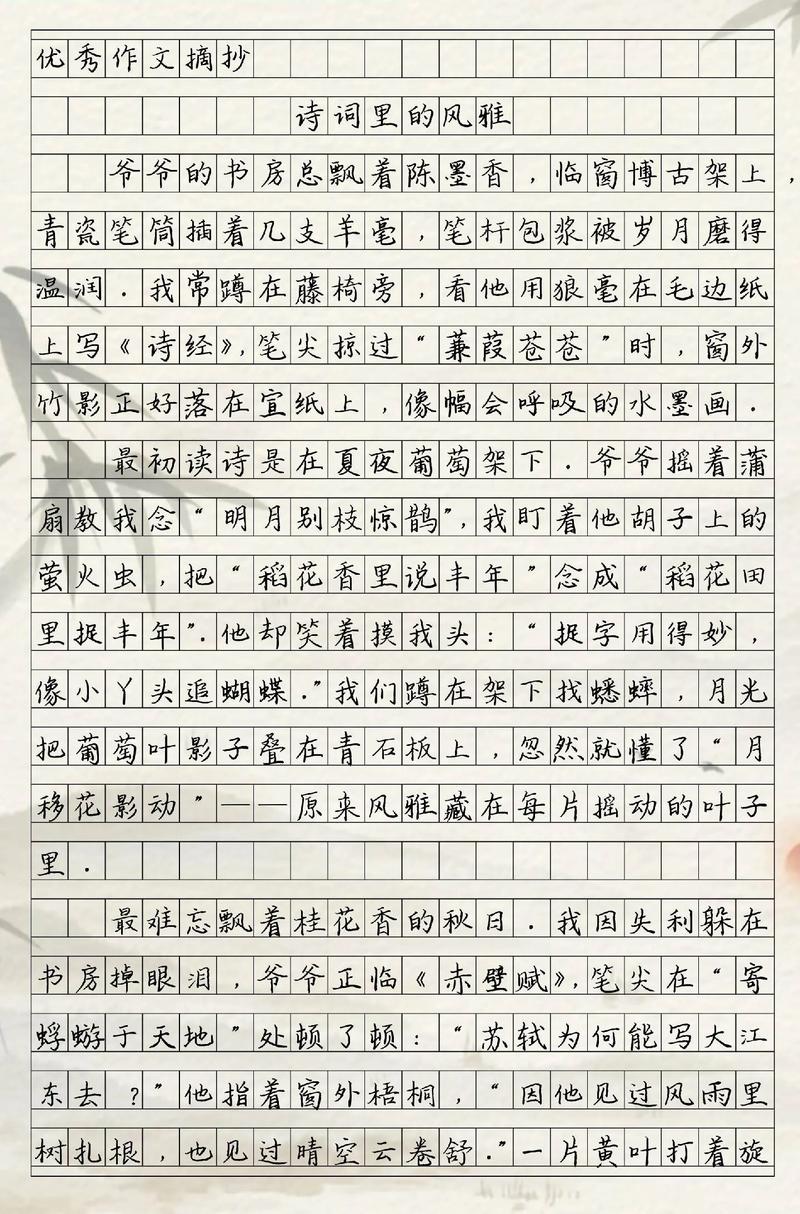 优秀作文摘抄
诗词里的风雅
爷爷的书房总飘着陈墨香，临窗博古架上，
青瓷笔筒插着几支羊毫，笔杆包浆被岁月磨得
温润.我常蹲在藤椅旁，看他用狼毫在毛边纸
上写《诗经》,笔尖掠过“蒹葭苍苍”时，窗外
竹影正好落在宣纸上，像幅会呼吸的水墨画.
最初读诗是在夏夜葡萄架下.爷爷摇着蒲
扇教我念“明月别枝惊鹊”,我盯着他胡子上的
萤火虫，把“稻花香里说丰年”念成“稻花田
里捉丰年”.他却笑着摸我头：“捉字用得妙，
像小丫头追蝴蝶.”我们蹲在架下找蟋蟀，月光
把葡萄叶影子叠在青石板上，忽然就懂了“月
移花影动”——原来风雅藏在每片摇动的叶子
里.
最难忘飘着桂花香的秋日.我因失利躲在
书房掉眼泪，爷爷正临《赤壁赋》,笔尖在“寄
蜉蝣于天地”处顿了顿：“苏轼为何能写大江
东去？”他指着窗外梧桐，“因他见过风雨里
树扎根，也见过晴空云卷舒.”一片黄叶打着旋